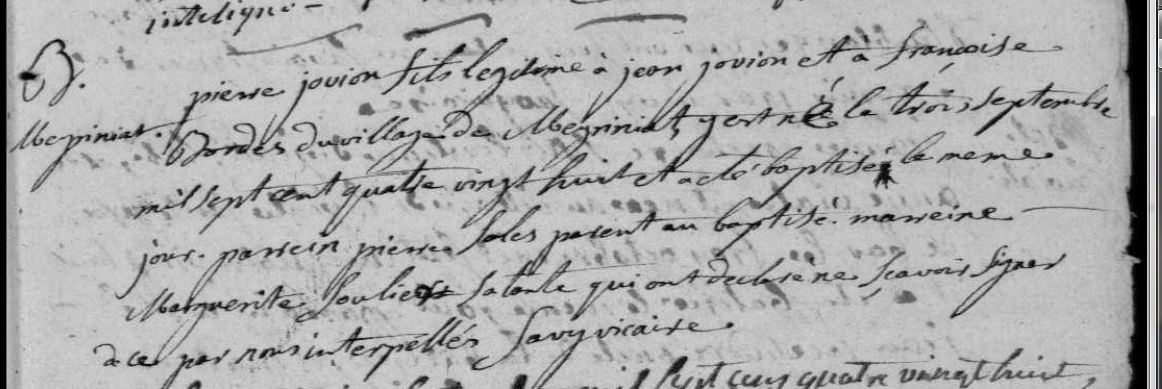 interligne
B. pierre jovion fils legitime à jean jovion et à francoise
Mepiniat. Bordes du village de Mepiniat y est né le trois septembre
mil sept cent quatre vingt huit et a eté baptisé le meme
jour. parrein pierre Soles parent au baptisé. marreine
Marguerite Soulier sa tante qui ont declaré ne scavoir signer
de ce par nous interpellés Savy vicaire.
mil sept cens quatre vaingt huit